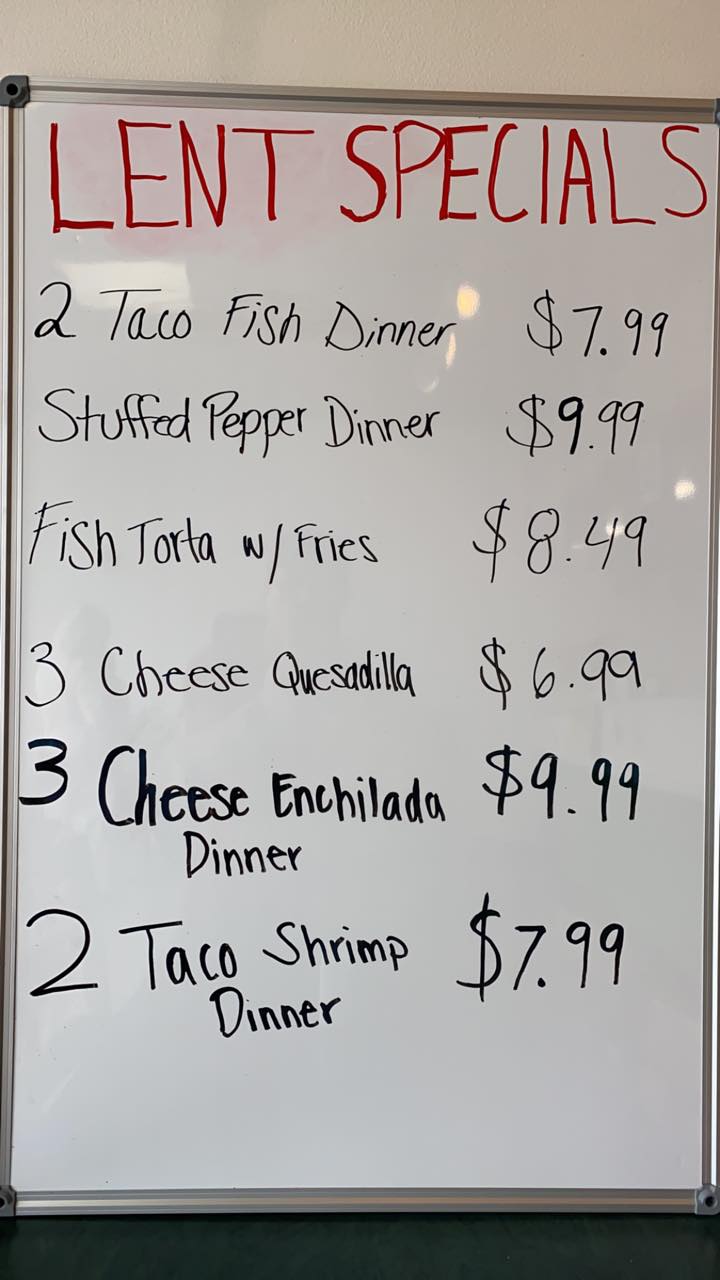 LENT SPECIALS
2 Taco Fish Dinner $7.99
Stuffed Pepper Dinner $9.99
Fish Torta w/ Fries $8.49
3 Cheese Quesadilla $6.99
3 Cheese Enchilada $9.99
Dinner
2 Taco Shrimp $7.99
Dinner